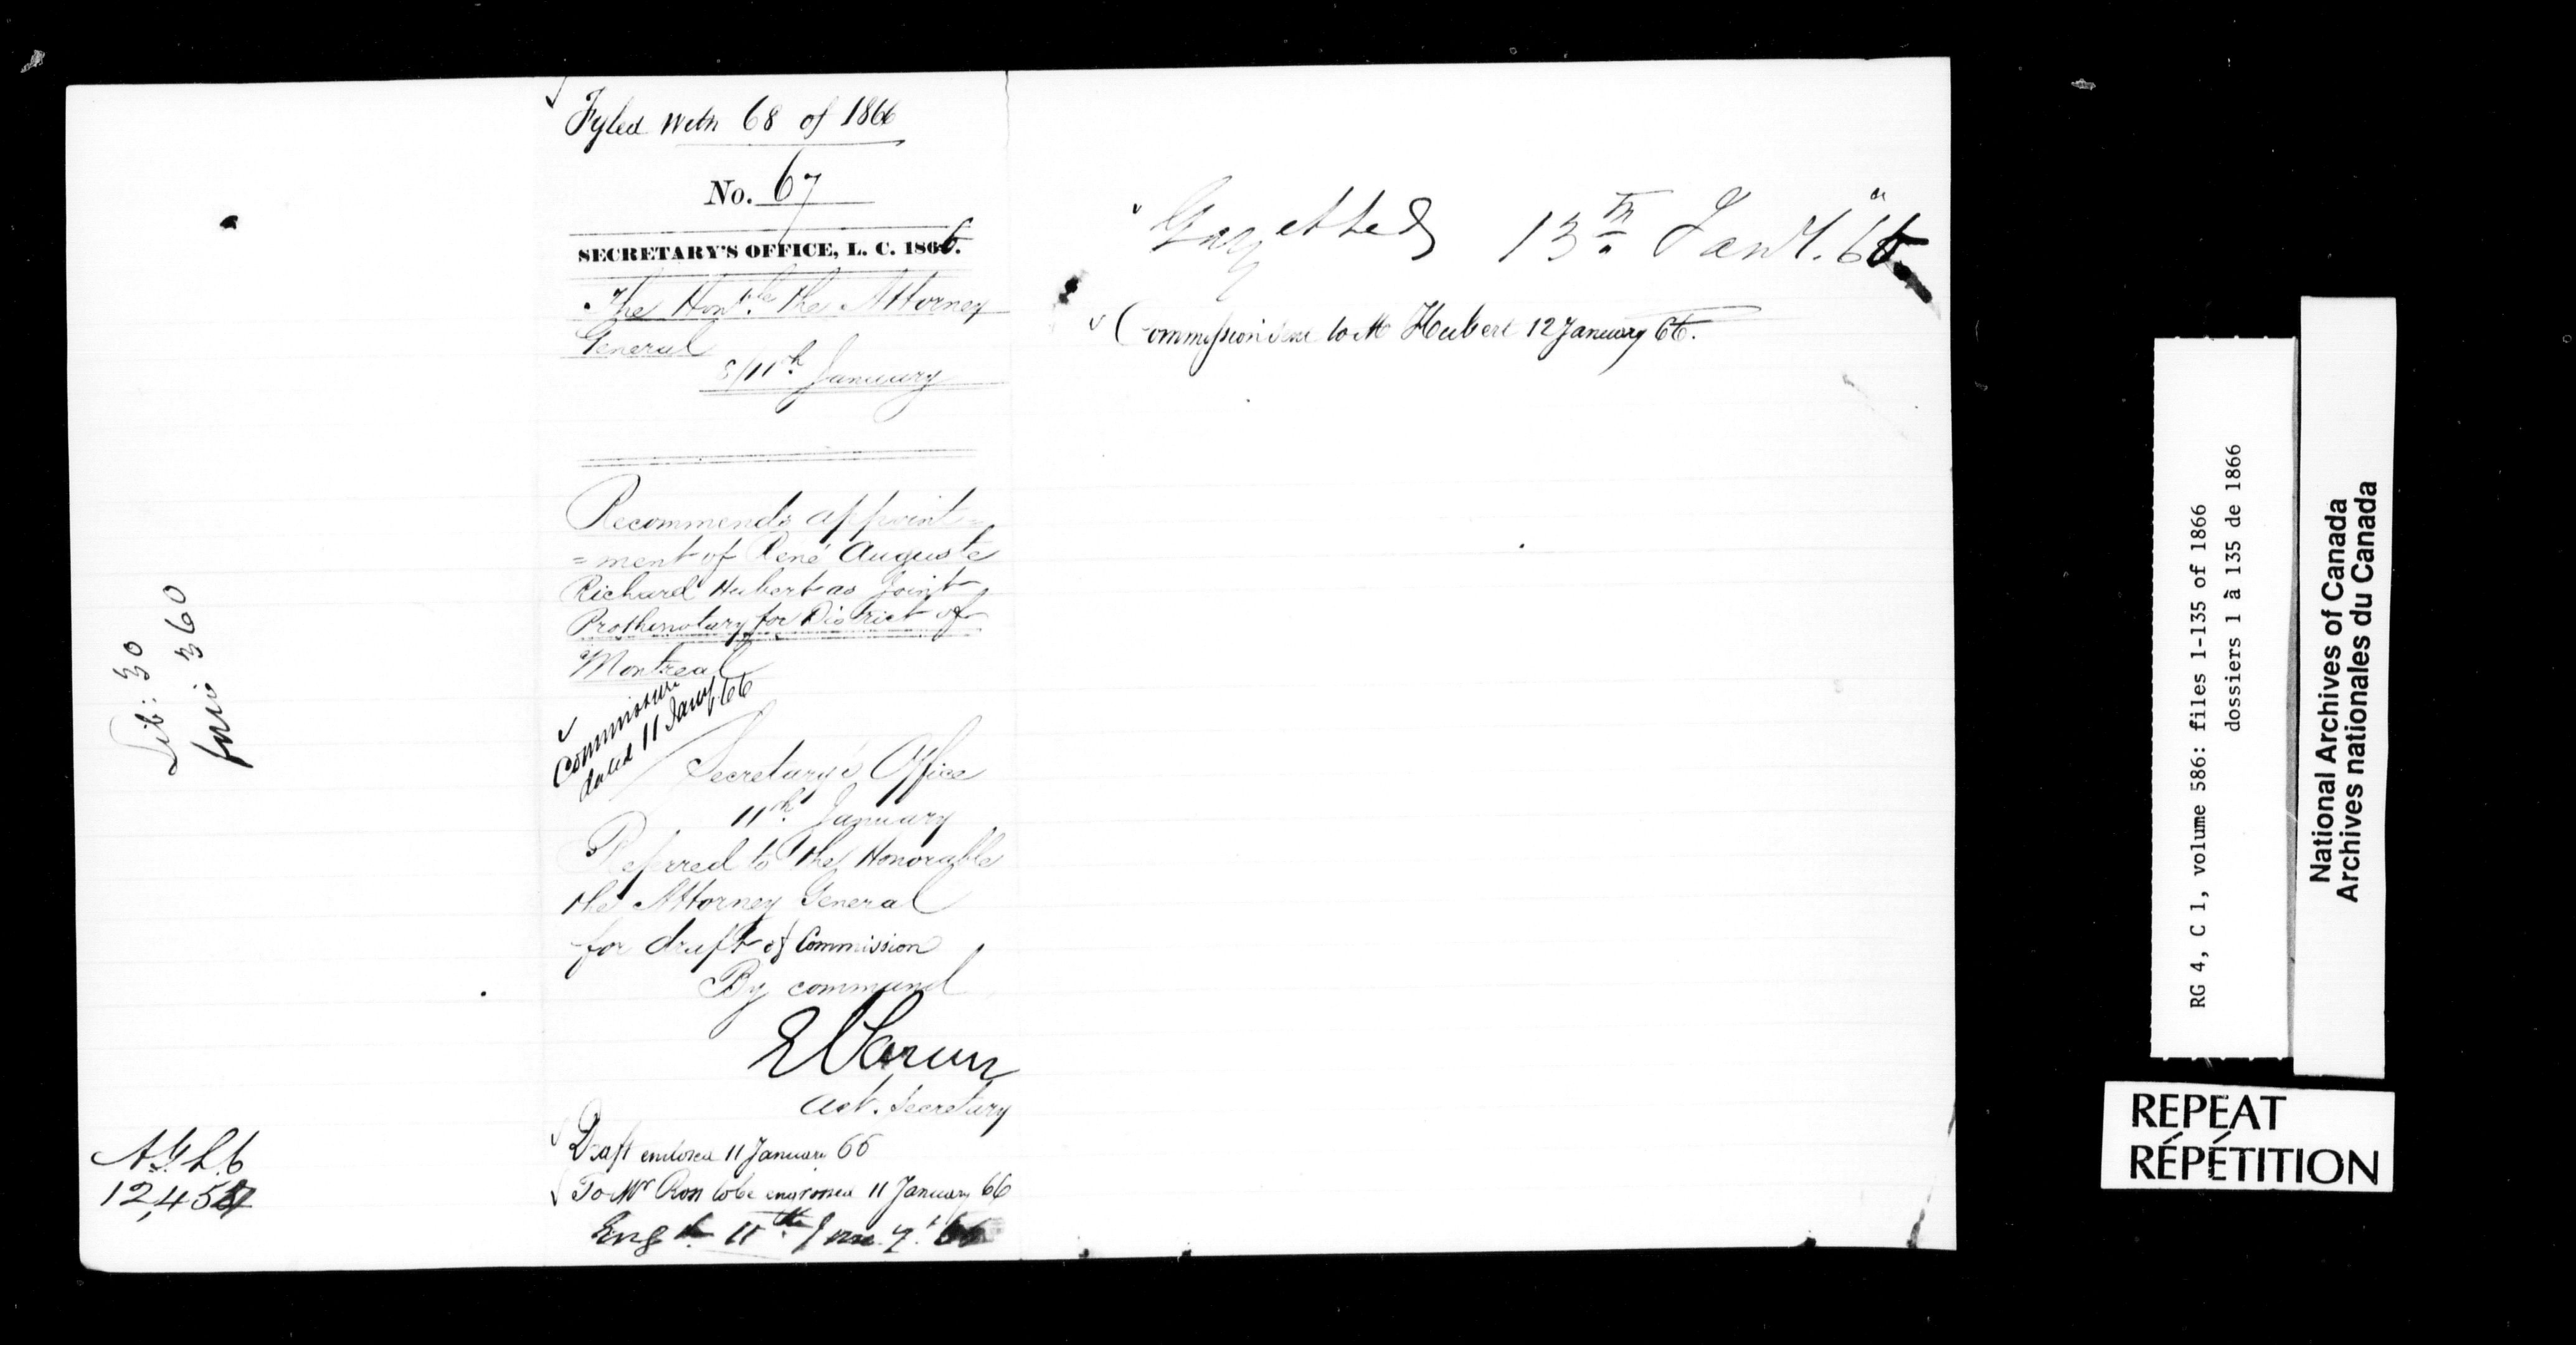 Lib: 30
folio 360
A.G.L.C
12,457
Fyled with 68 of 1866
No. 67
SECRETARY'S OFFICE, L. C. 1866.
The Honble the Attorney
General
8/11th January
Recommends appoint=
=ment of René Auguste
Richard Hubert as Joint
Prothonotary for District of
Montreal
Commission
dated 11 Jany 66
Secretary's Office
11th January
Referred to the Honorable
the Attorney General
for draft of Commission
By command
Act. Secretary
Draft enclosed 11 January 66
To Mr Ross to be engrossed 11 January 66
Engd 11th Jany. 66
Gazetted 13th Jany. 66
Commission sent to M Hubert 12 January 66.
RG 4, C 1, volume 586: files 1-135 of 1866
dossiers 1 à 135 de 1866
National Archives of Canada
Archives nationales du Canada
REPEAT
RÉPÉTITION